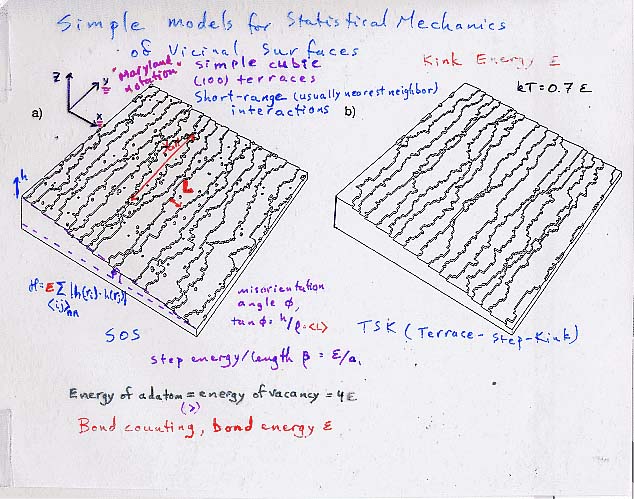 Simple models for Statistical Mechanics
of Vicinal Surfaces
"Maryland notation"
simple cubic
(100) terraces
Short-range (usually nearest neighbor)
interactions
Kink Energy ε
kT = 0.7 ε
z
y
x
a)
b)
h
L
ℋ = E Σ |h(r_i) - h(r_j)|
<ij>nn
misorientation
angle φ,
tan φ = h/ℓ = <L>
SOS
TSK (Terrace-Step-Kink)
step energy/length β = ε/a,
Energy of adatom = energy of vacancy = 4ε
(>)
Bond counting, bond energy ε